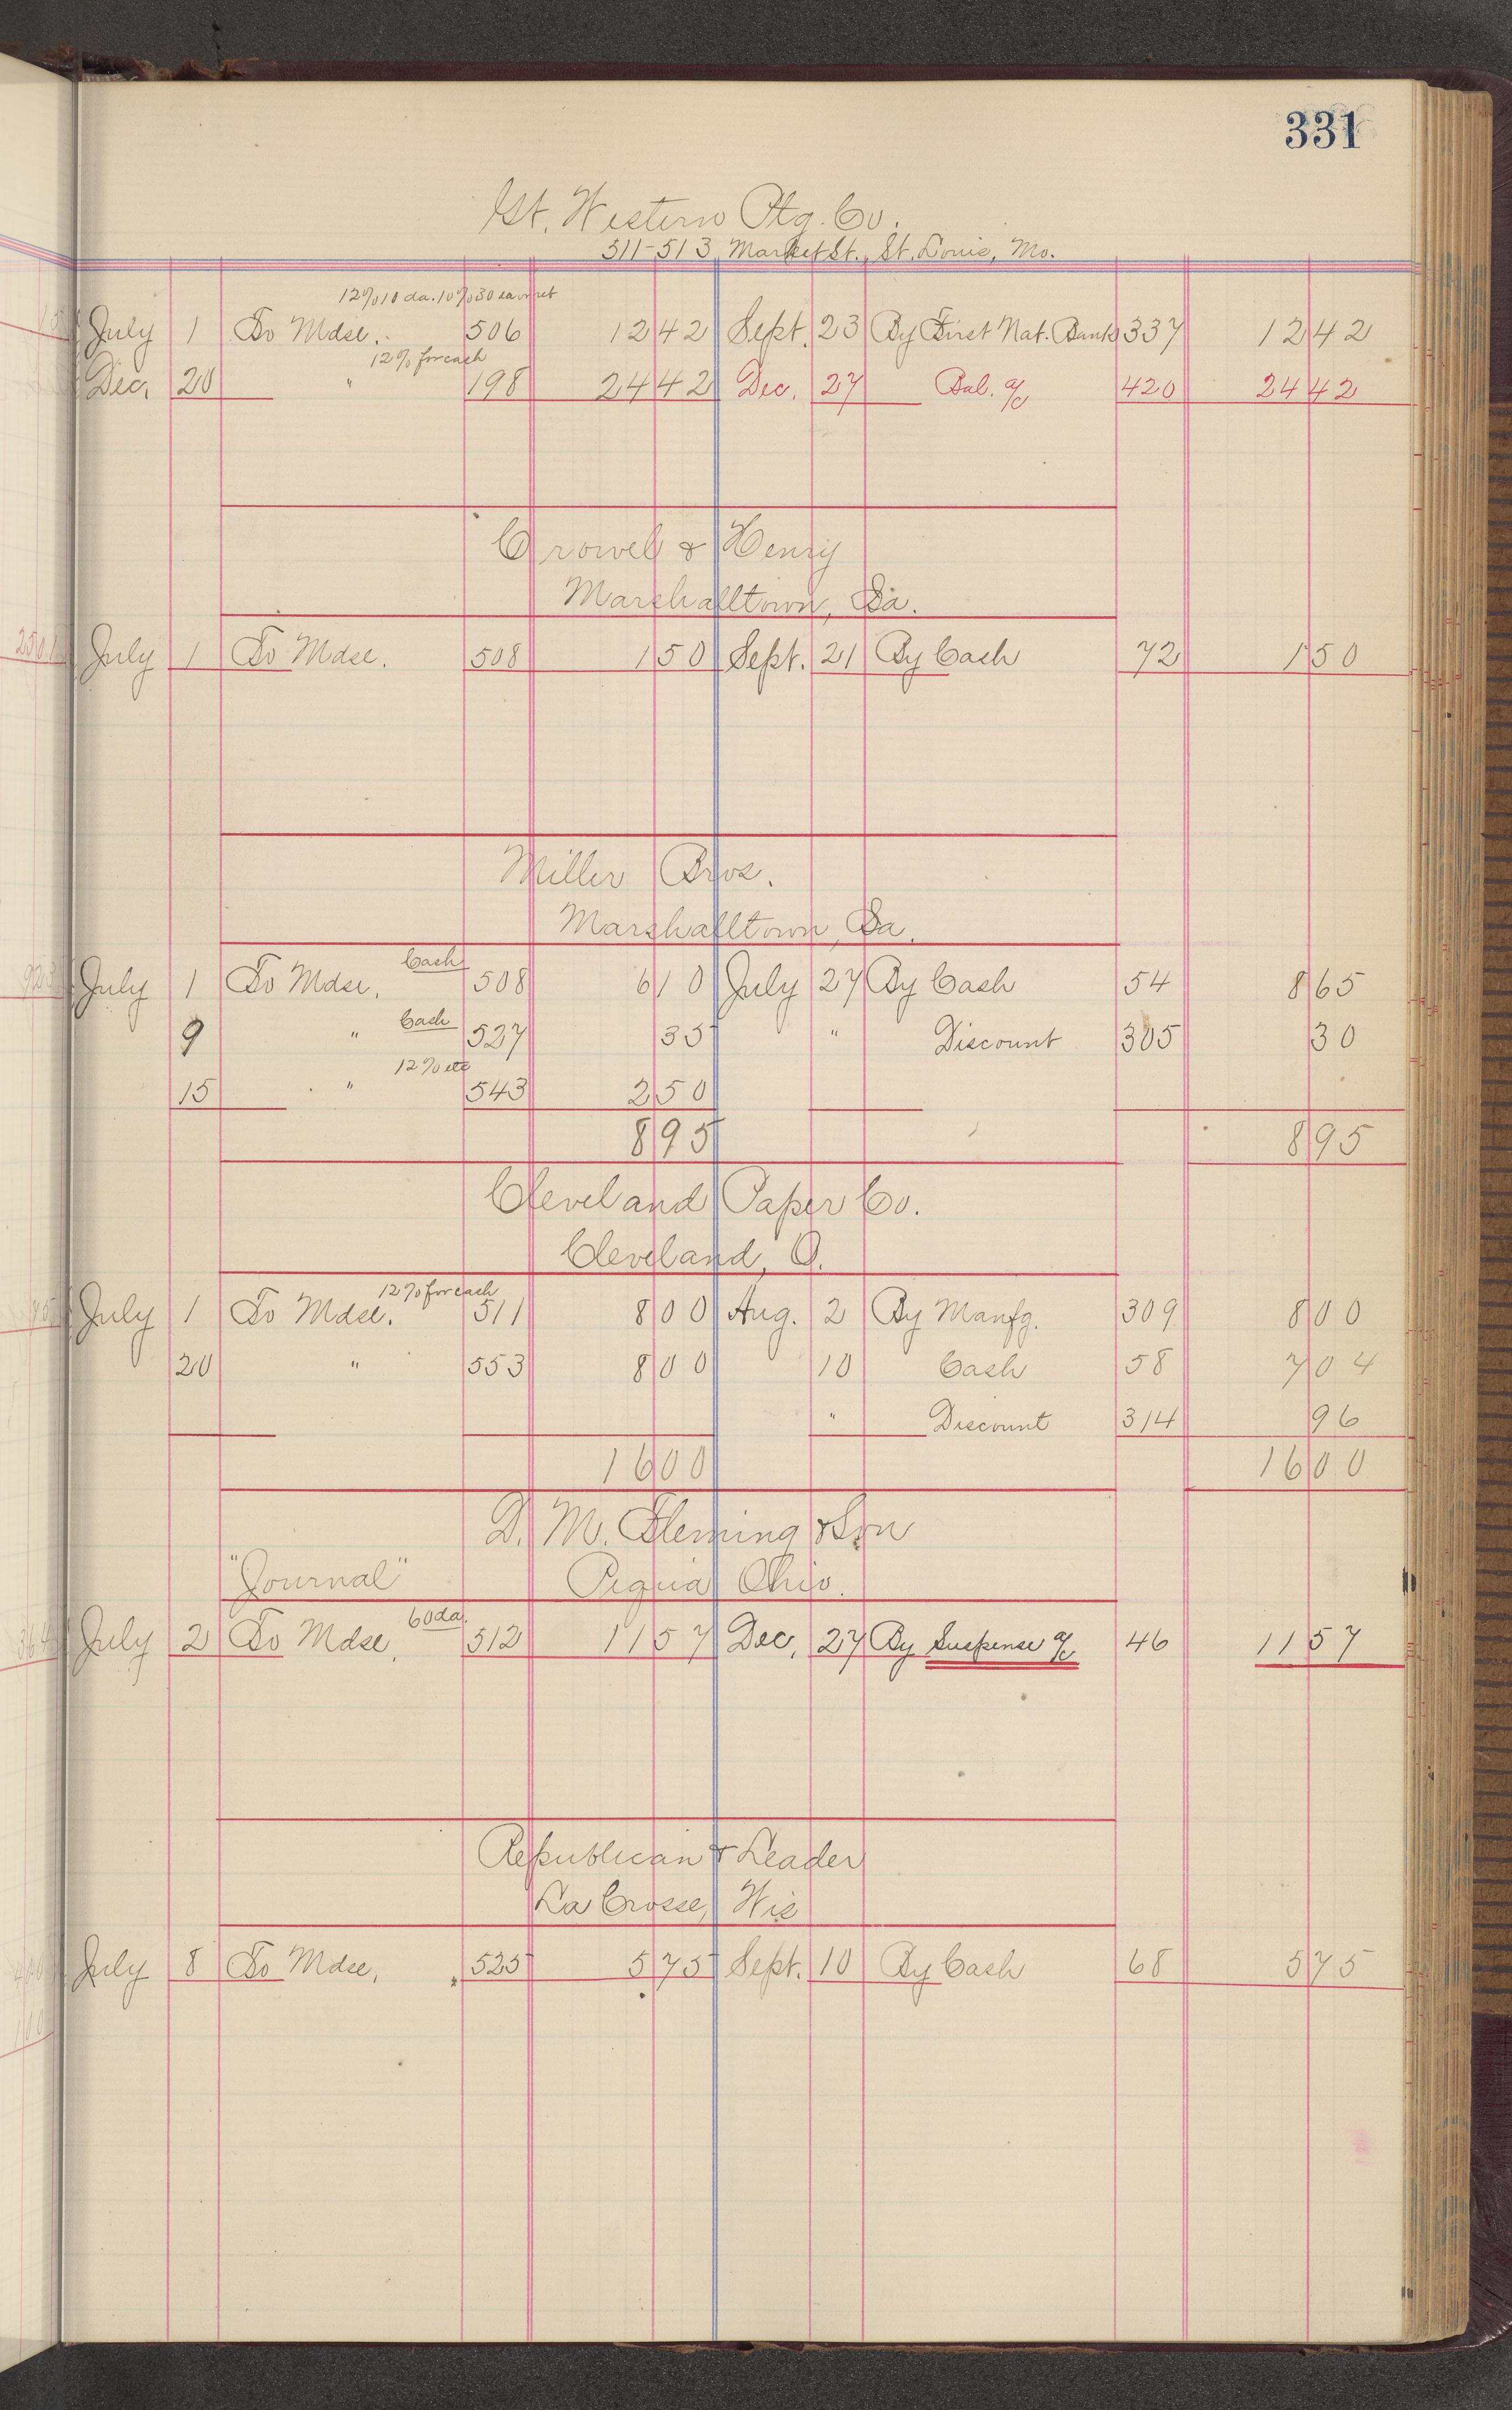 331
Gt. Western Ptg. Co.
511-513 Market St., St. Louis, Mo.
12% 10 da. 10% 30 da or net
July 1 To Mdse. 506 12 42 Sept. 23 By First Nat. Bank 337 12 42
12% for cash
Dec. 20 " 198 24 42 Dec. 27 Bal. a/c 420 24 42
Crowel & Henry
Marshalltown, Ia.
July 1 To Mdse. 508 1 50 Sept. 21 By Cash 72 1 50
Miller Bros.
Marshalltown, Ia.
Cash
July 1 To Mdse. 508 6 10 July 27 By Cash 54 8 65
Cash
9 " 527 35 " Discount 305 30
12% etc
15 " 543 2 50
8 95 8 95
Cleveland Paper Co.
Cleveland, O.
12% for cash
July 1 To Mdse. 511 8 00 Aug. 2 By Manfg. 309 8 00
20 " 553 8 00 10 Cash 58 7 04
" Discount 314 96
16 00 16 00
D. M. Fleming & Son
"Journal" Piqua Ohio.
60 da.
July 2 To Mdse, 512 11 57 Dec, 27 By Suspense a/c 46 11 57
Republican & Leader
La Crosse, Wis
July 8 To Mdse, 525 5 75 Sept. 10 By Cash 68 5 75